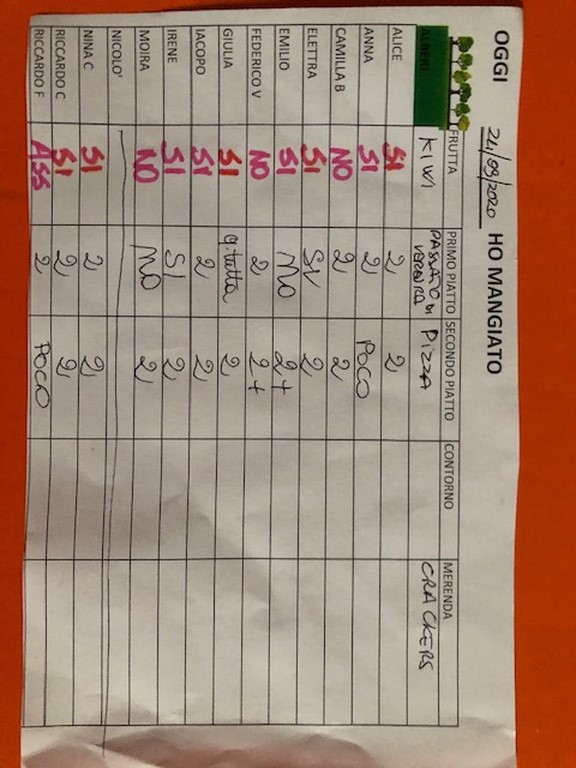 OGGI 24/09/2020 HO MANGIATO
FRUTTA PRIMO PIATTO SECONDO PIATTO CONTORNO MERENDA
ALBERI KIWI PASSATO DI VERDURA PIZZA CRACKERS
ALICE SI 2 2
ANNA SI 2 POCO
CAMILLA B NO 2 2
ELETTRA SI SI 2
EMILIO SI NO 2+
FEDERICO V NO 2 2+
GIULIA SI 2
IACOPO SI 2 2
IRENE SI SI 2
MOIRA NO NO 2
NICOLO'
NINA C SI 2 2
RICCARDO C SI 2 2
RICCARDO F ASS 2 POCO